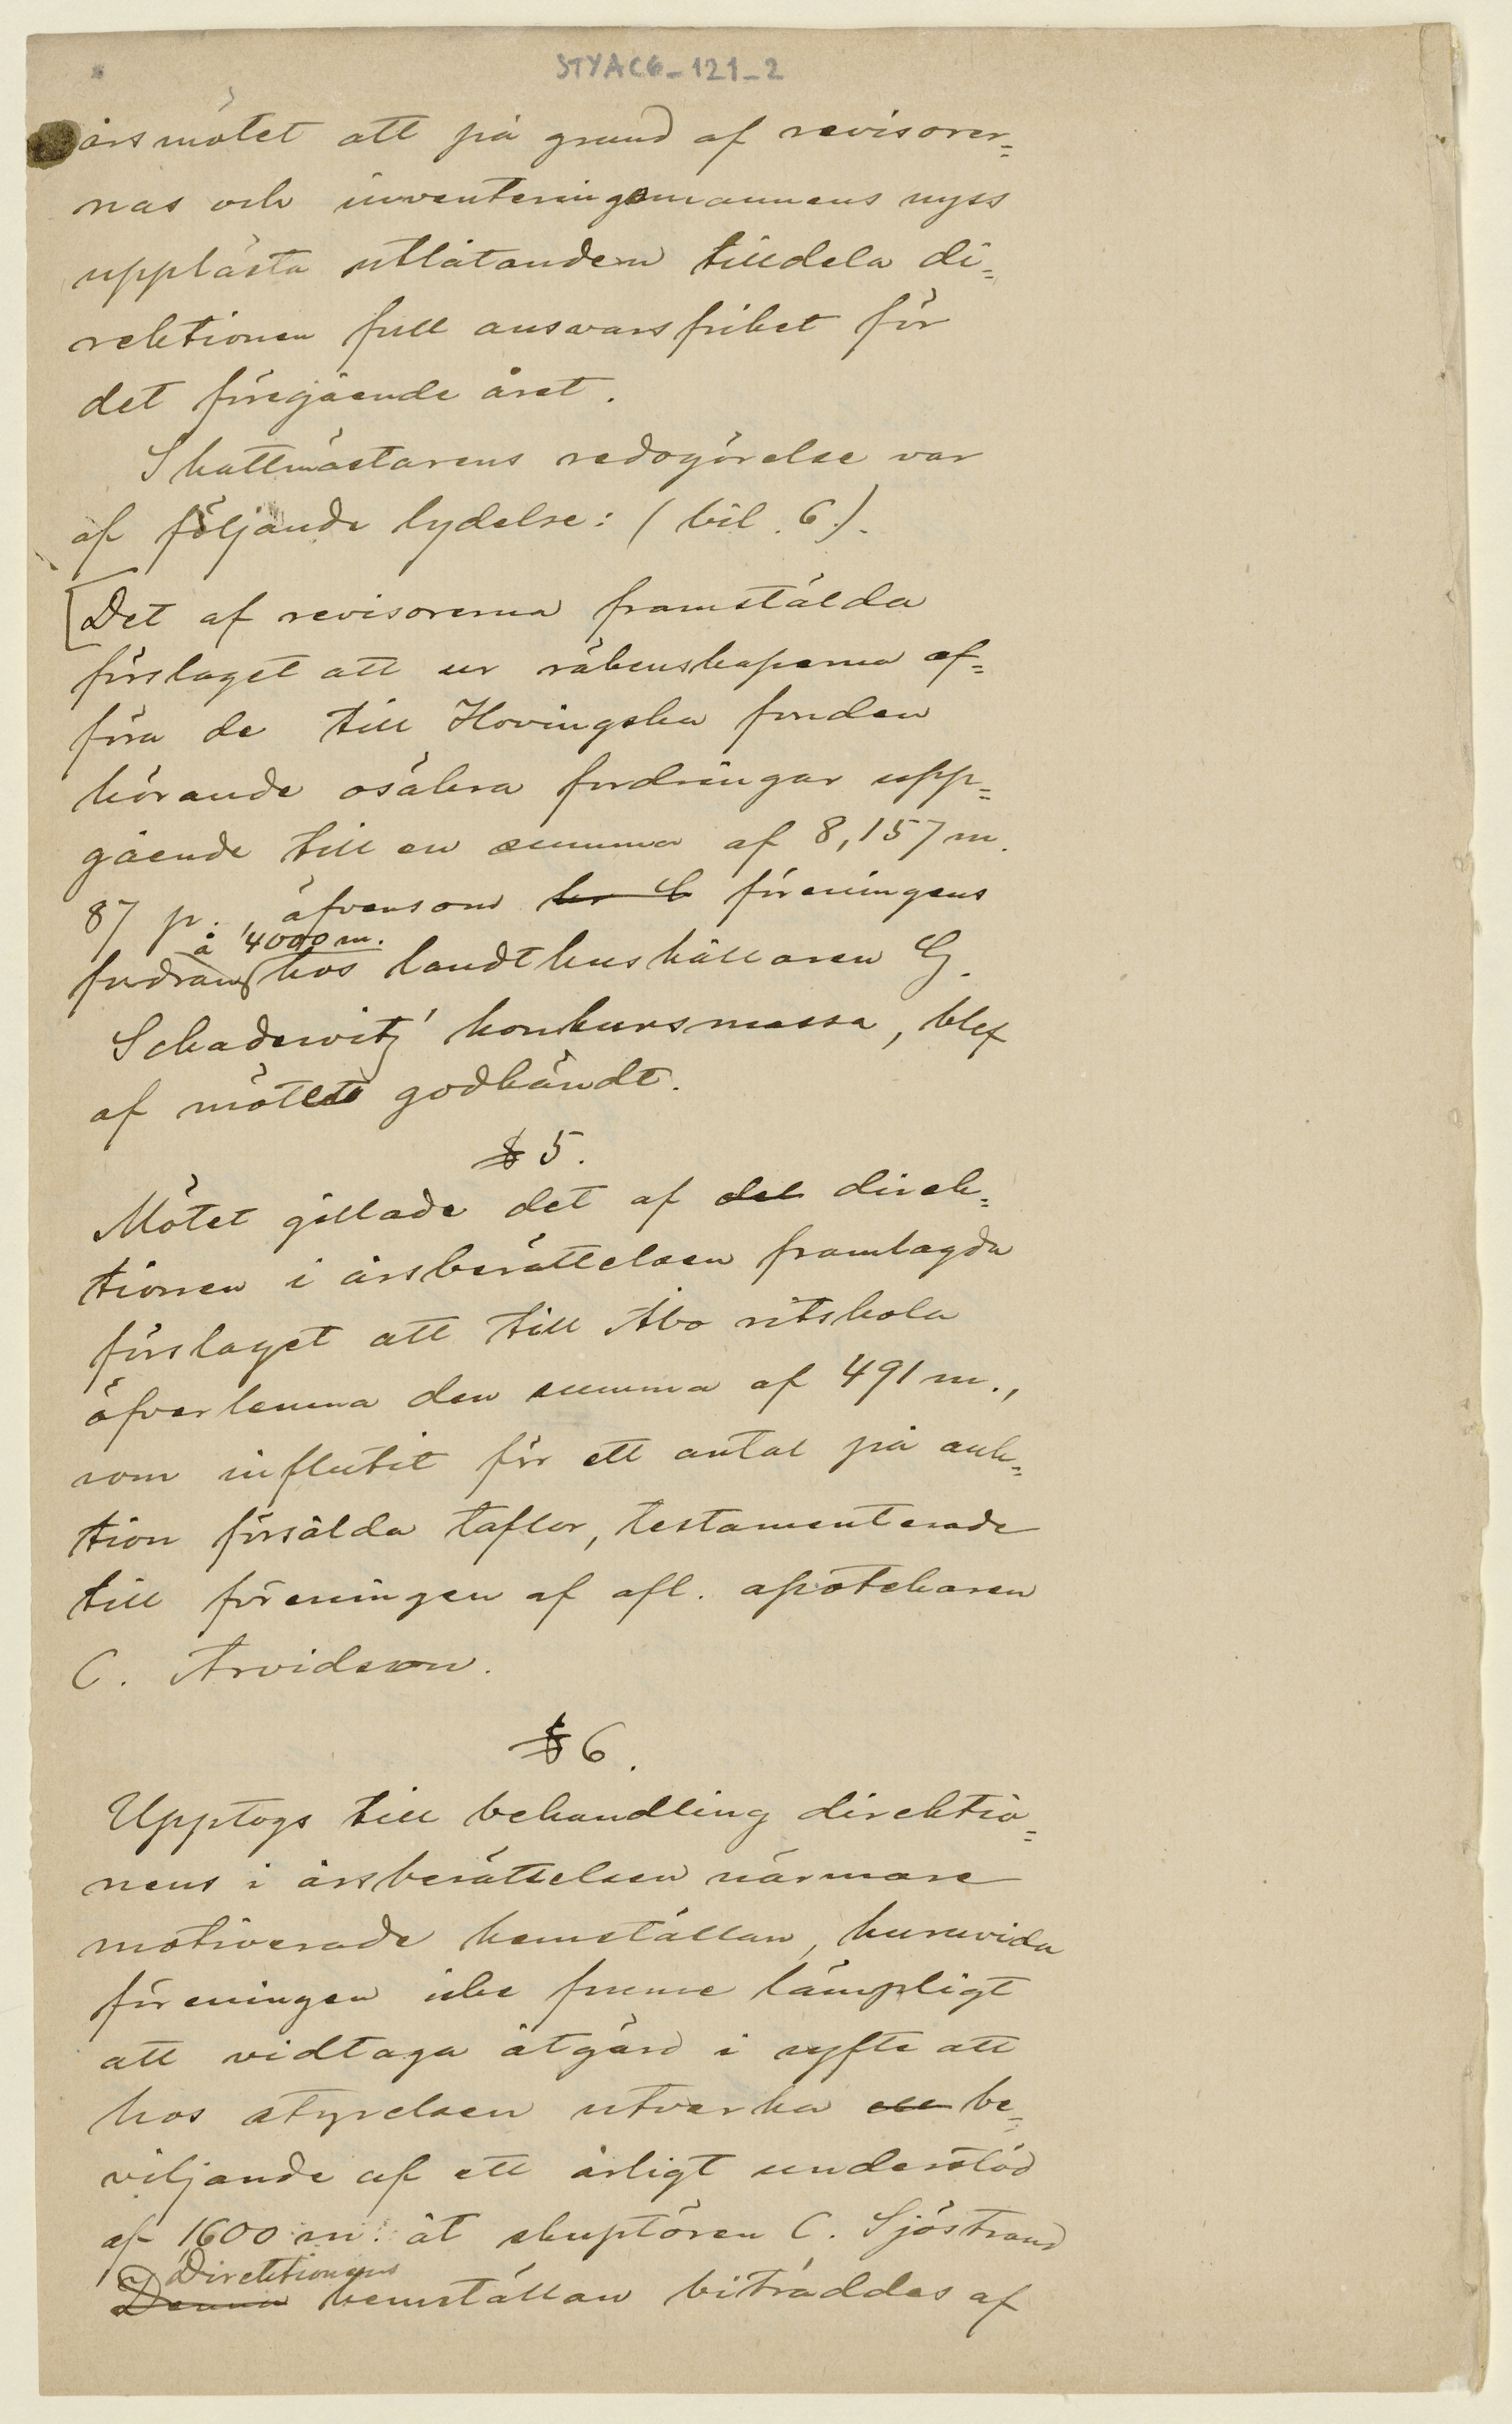 STYAC6_121_2
årsmötet att på grund af revisorer=
nas och inventeringsmannens nyss
upplästa utlåtanden tilldela di=
rektionen full ansvarsfrihet för
det föregående året.
Skattmästarens redogörelse var
af följande lydelse: (bil. 6.).
[Det af revisorerna framstälda
förslaget att ur räkenskaperna af=
föra de till Hovingska fonden
hörande osäkra fordringar upp=
gående till en summa af 8,157 m.
87 p., äfvensom föreningens
å 4000 m.
fordran hos landthushållaren G.
Schadewitz' konkursmassa, blef
af mötet godkändt.
§ 5.
Mötet gillade det af del direk=
tionen i årsberättelsen framlagda
förslaget att till Åbo ritskola
öfverlemna den summa af 491 m.,
som influtit för ett antal på auk=
tion försålda taflor, testamenterade
till föreningen af afl. apotekaren
C. Arvidsson.
§ 6.
Upptogs till behandling direktio=
nens i årsberättelsen närmare
motiverade hemställan, huruvida
föreningen icke funne lämpligt
att vidtaga åtgärd i syfte att
hos styrelsen utverka ett be=
viljande af ett årligt understöd
af 1600 m. åt skuptören C. Sjöstrand
Direktionens
Denna hemställan biträddes af